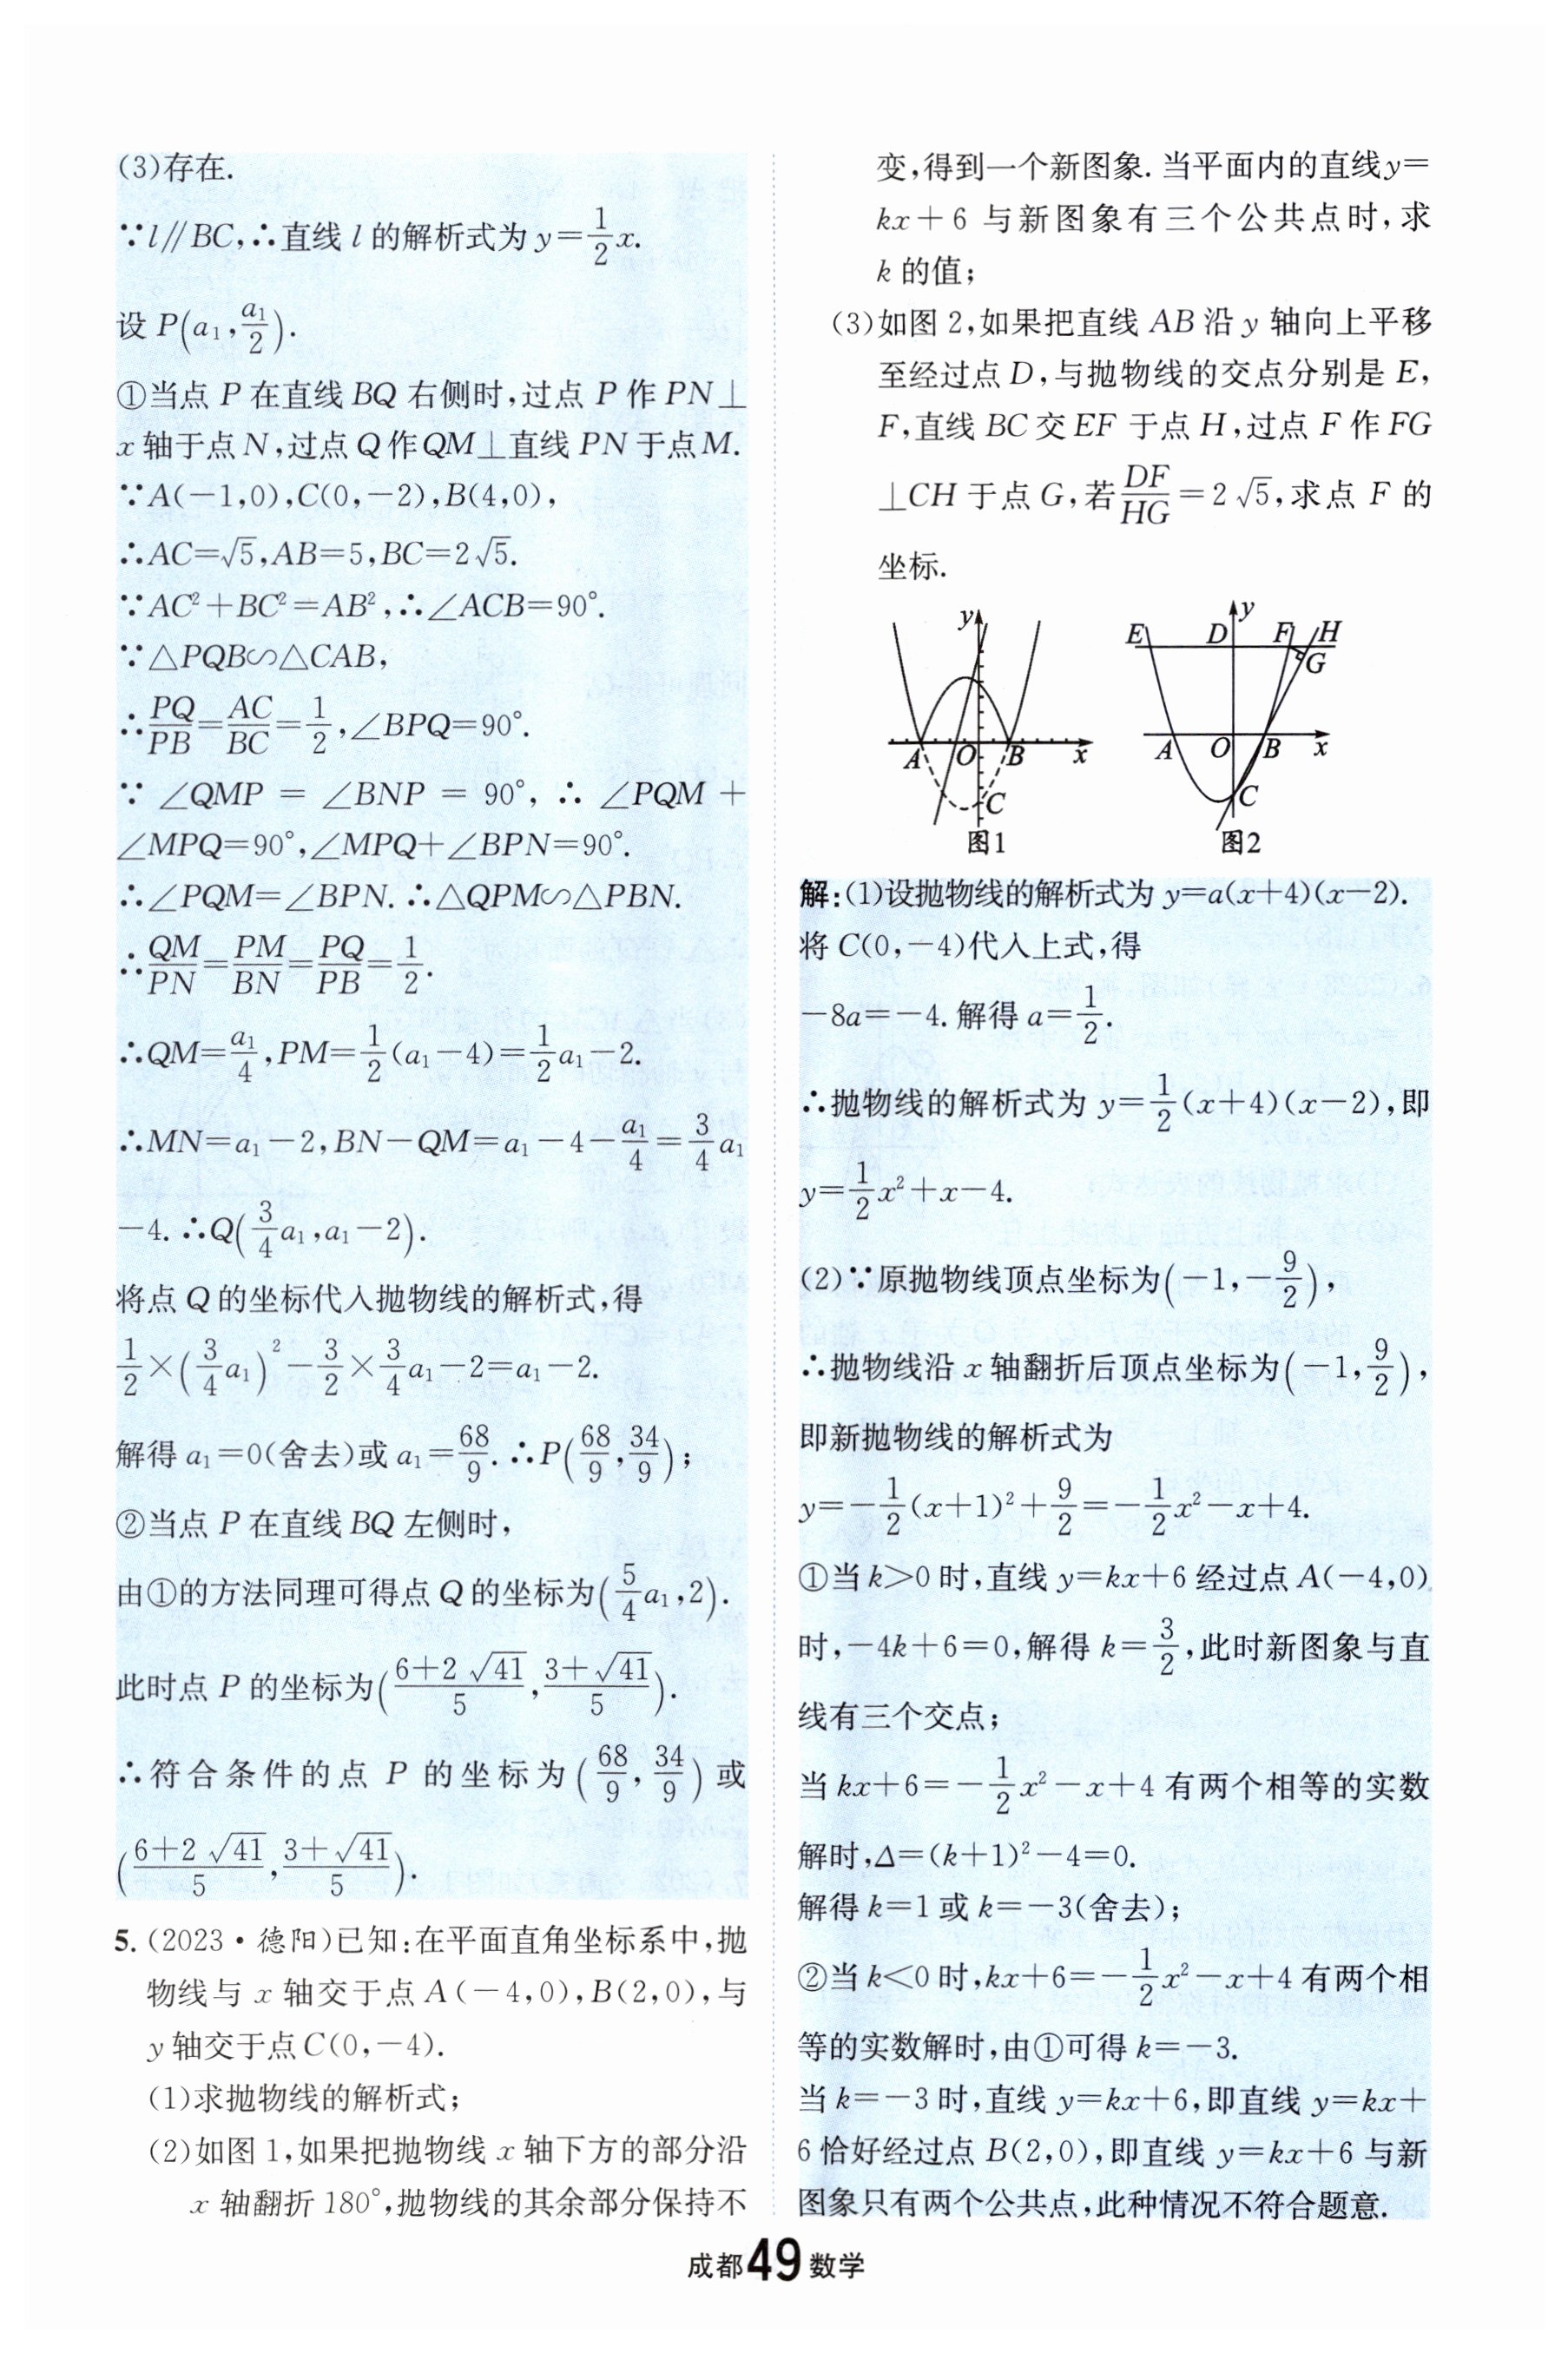 (3)存在.
∵l∥BC,∴直线 l 的解析式为 y=1/2x.
设 P(a₁,a₁/2).
①当点 P 在直线 BQ 右侧时,过点 P 作 PN⊥
x 轴于点 N,过点 Q 作 QM⊥直线 PN 于点 M.
∵A(-1,0),C(0,-2),B(4,0),
∴AC=√5,AB=5,BC=2√5.
∵AC²+BC²=AB²,∴∠ACB=90°.
∵△PQB∽△CAB,
∴PQ/PB=AC/BC=1/2,∠BPQ=90°.
∵∠QMP=∠BNP=90°,∴∠PQM+
∠MPQ=90°,∠MPQ+∠BPN=90°.
∴∠PQM=∠BPN.∴△QPM∽△PBN.
∴QM/PN=PM/BN=PQ/PB=1/2.
∴QM=a₁/4,PM=1/2(a₁-4)=1/2a₁-2.
∴MN=a₁-2,BN-QM=a₁-4-a₁/4=3/4a₁
-4.∴Q(3/4a₁,a₁-2).
将点 Q 的坐标代入抛物线的解析式,得
1/2×(3/4a₁)²-3/2×3/4a₁-2=a₁-2.
解得 a₁=0(舍去)或 a₁=68/9.∴P(68/9,34/9);
②当点 P 在直线 BQ 左侧时,
由①的方法同理可得点 Q 的坐标为(5/4a₁,2).
此时点 P 的坐标为((6+2√41)/5,(3+√41)/5).
∴符合条件的点 P 的坐标为(68/9,34/9)或
((6+2√41)/5,(3+√41)/5).
5.(2023·德阳)已知:在平面直角坐标系中,抛
物线与 x 轴交于点 A(-4,0),B(2,0),与
y 轴交于点 C(0,-4).
(1)求抛物线的解析式;
(2)如图 1,如果把抛物线 x 轴下方的部分沿
x 轴翻折 180°,抛物线的其余部分保持不
变,得到一个新图象.当平面内的直线 y=
kx+6 与新图象有三个公共点时,求
k 的值;
(3)如图 2,如果把直线 AB 沿 y 轴向上平移
至经过点 D,与抛物线的交点分别是 E,
F,直线 BC 交 EF 于点 H,过点 F 作 FG
⊥CH 于点 G,若DF/HG=2√5,求点 F 的
坐标.
y
A O B x
C
图1
y
E D F H
G
A O B x
C
图2
解:(1)设抛物线的解析式为 y=a(x+4)(x-2).
将 C(0,-4)代入上式,得
-8a=-4.解得 a=1/2.
∴抛物线的解析式为 y=1/2(x+4)(x-2),即
y=1/2x²+x-4.
(2)∵原抛物线顶点坐标为(-1,-9/2),
∴抛物线沿 x 轴翻折后顶点坐标为(-1,9/2),
即新抛物线的解析式为
y=-1/2(x+1)²+9/2=-1/2x²-x+4.
①当 k>0 时,直线 y=kx+6 经过点 A(-4,0)
时,-4k+6=0,解得 k=3/2,此时新图象与直
线有三个交点;
当 kx+6=-1/2x²-x+4 有两个相等的实数
解时,Δ=(k+1)²-4=0.
解得 k=1 或 k=-3(舍去);
②当 k<0 时,kx+6=-1/2x²-x+4 有两个相
等的实数解时,由①可得 k=-3.
当 k=-3 时,直线 y=kx+6,即直线 y=kx+
6 恰好经过点 B(2,0),即直线 y=kx+6 与新
图象只有两个公共点,此种情况不符合题意.
成都49数学